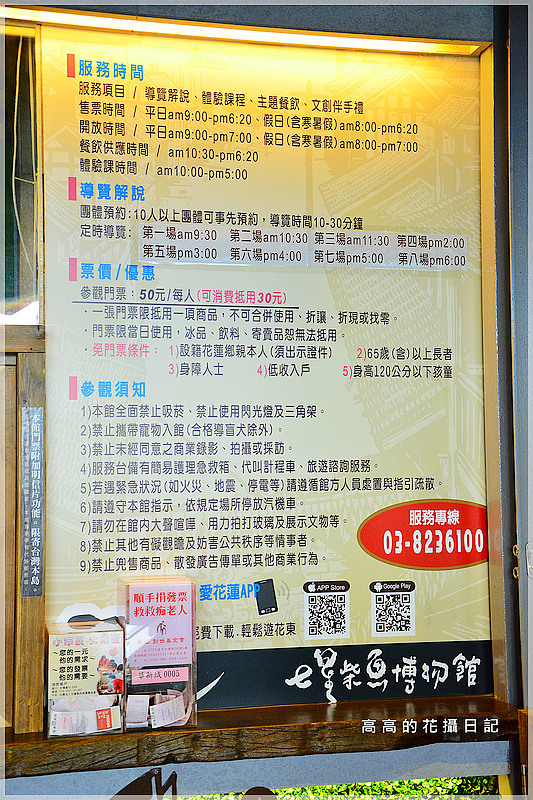 服務時間
服務項目 / 導覽解說、體驗課程、主題餐飲、文創伴手禮
售票時間 / 平日am9:00-pm6:20、假日(含寒暑假)am8:00-pm6:20
開放時間 / 平日am9:00-pm7:00、假日(含寒暑假)am8:00-pm7:00
餐飲供應時間 / am10:30-pm6:20
體驗課時間 / am10:00-pm5:00
導覽解說
團體預約:10人以上團體可事先預約,導覽時間10-30分鐘
定時導覽: 第一場am9:30 第二場am10:30 第三場am11:30 第四場pm2:00
第五場pm3:00 第六場pm4:00 第七場pm5:00 第八場pm6:00
票價/優惠
參觀門票:50元/每人(可消費抵用30元)
·一張門票限抵用一項商品,不可合併使用、折讓、折現或找零。
·門票限當日使用,冰品、飲料、寄賣品恕無法抵用。
·免門票條件: 1)設籍花蓮鄉親本人(須出示證件) 2)65歲(含)以上長者
3)身障人士 4)低收入戶 5)身高120公分以下孩童
參觀須知
1)本館全面禁止吸菸、禁止使用閃光燈及三角架。
2)禁止攜帶寵物入館(合格導盲犬除外)。
3)禁止未經同意之商業錄影、拍攝或採訪。
4)服務台備有簡易護理急救箱、代叫計程車、旅遊諮詢服務。
5)若遇緊急狀況(如火災、地震、停電等)請遵循館方人員處置與指引疏散。
6)請遵守本館指示,依規定場所停放汽機車。
7)請勿在館內大聲喧嘩、用力拍打玻璃及展示文物等。
8)禁止其他有礙觀瞻及妨害公共秩序等情事者。
9)禁止兜售商品、散發廣告傳單或其他商業行為。
服務專線
03-8236100
本館門票附加明信片功能。限寄台灣本島。
愛花蓮APP
免費下載.輕鬆遊花東
APP Store
Google Play
順手捐發票
救救痴老人
創世基金會
華新城 0005
您的一元
他的需求
您的發票
他的需要
七星柴魚博物館
高高的花攝日記